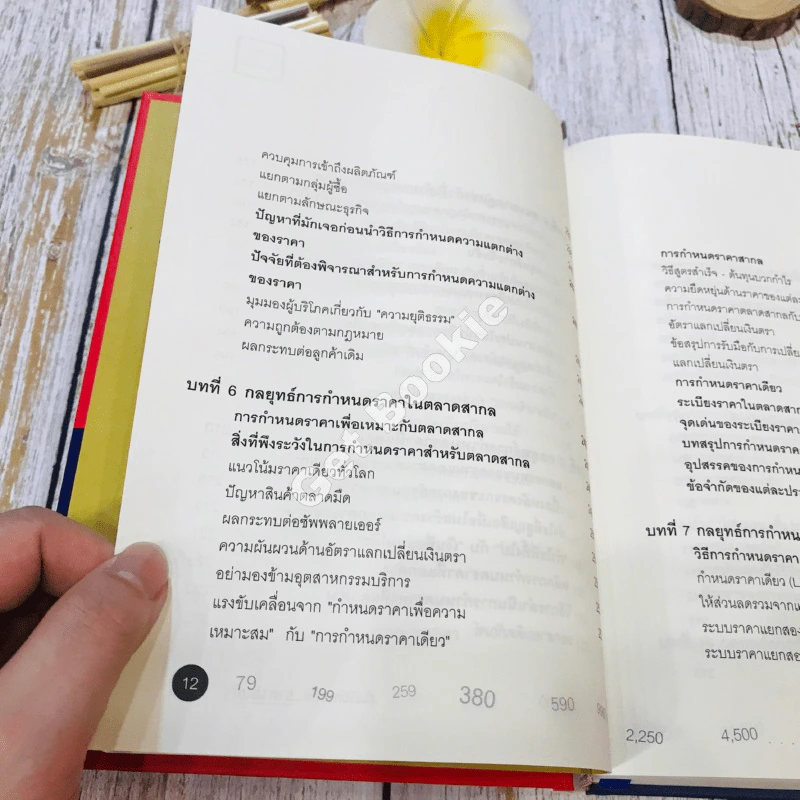 ควบคุมการเข้าถึงผลิตภัณฑ์
แยกตามกลุ่มผู้ซื้อ
แยกตามลักษณะธุรกิจ
ปัญหาที่มักเจอก่อนนำวิธีการกำหนดความแตกต่าง
ของราคา
ปัจจัยที่ต้องพิจารณาสำหรับการกำหนดความแตกต่าง
ของราคา
มุมมองผู้บริโภคเกี่ยวกับ "ความยุติธรรม"
ความถูกต้องตามกฎหมาย
ผลกระทบต่อลูกค้าเดิม
บทที่ 6 กลยุทธ์การกำหนดราคาในตลาดสากล
การกำหนดราคาเพื่อเหมาะกับตลาดสากล
สิ่งที่พึงระวังในการกำหนดราคาสำหรับตลาดสากล
แนวโน้มราคาเดียวทั่วโลก
ปัญหาสินค้าตลาดมืด
ผลกระทบต่อซัพพลายเออร์
ความผันผวนด้านอัตราแลกเปลี่ยนเงินตรา
อย่ามองข้ามอุตสาหกรรมบริการ
แรงขับเคลื่อนจาก "กำหนดราคาเพื่อความ
เหมาะสม" กับ "การกำหนดราคาเดียว"
12 79 199 259 380 590
Get Bookie
การกำหนดราคาสากล
วิธีสูตรสำเร็จ - ต้นทุนบวกกำไร
ความยืดหยุ่นด้านราคาของแต่ละ
การกำหนดราคาตลาดสากลกับ
อัตราแลกเปลี่ยนเงินตรา
ข้อสรุปการรับมือกับการเปลี่ย
แลกเปลี่ยนเงินตรา
การกำหนดราคาเดียว
ระเบียงราคาในตลาดสาก
จุดเด่นของระเบียงราคา
บทสรุปการกำหนดราค
อุปสรรคของการกำหน
ข้อจำกัดของแต่ละประ
บทที่ 7 กลยุทธ์การกำหน
วิธีการกำหนดราคา
กำหนดราคาเดียว (L
ให้ส่วนลดรวมจากแ
ระบบราคาแยกสอง
ระบบราคาแยกสอ
2,250 4,500